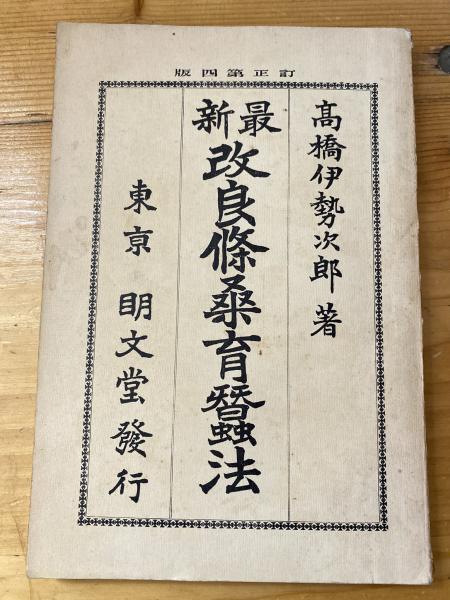 訂正第四版
髙橋伊勢次郎 著
最新 改良條桑育蠶法
東京 明文堂發行